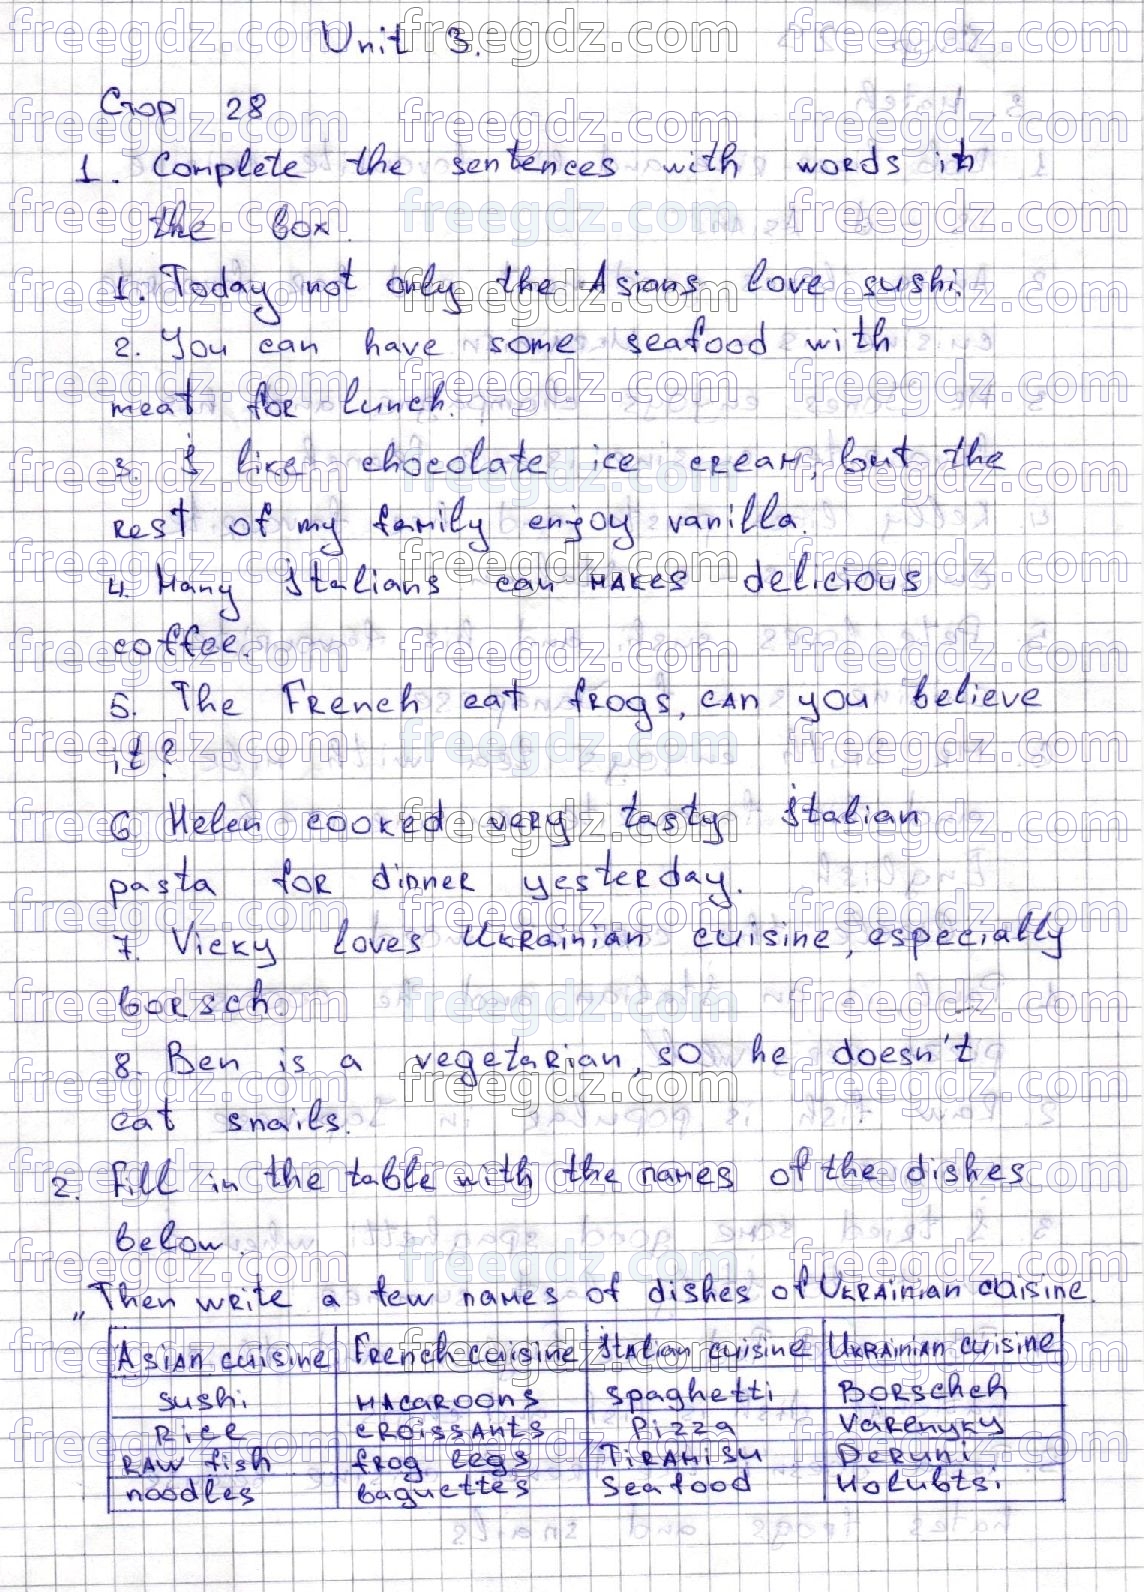 Unit 3.
Стор 28
1. Complete the sentences with words in
the box.
1. Today not only the Asians love sushi.
2. You can have some seafood with
meat for lunch.
3. I like chocolate ice cream, but the
rest of my family enjoy vanilla.
4. Many Italians can makes delicious
coffee.
5. The French eat frogs, can you believe
it?
6. Helen cooked very tasty Italian
pasta for dinner yesterday.
7. Vicky loves Ukrainian cuisine, especially
borsch.
8. Ben is a vegetarian, so he doesn't
eat snails.
2. Fill in the table with the names of the dishes
below.
„Then write a few names of dishes of Ukrainian cuisine.
Asian cuisine French cuisine Italian cuisine Ukrainian cuisine
sushi macaroons spaghetti Borscheh
Rice croissants Pizza Varenyky
Raw fish frog legs Tiramisu Deruni
noodles baguettes Seafood Holubtsi
freegdz.com